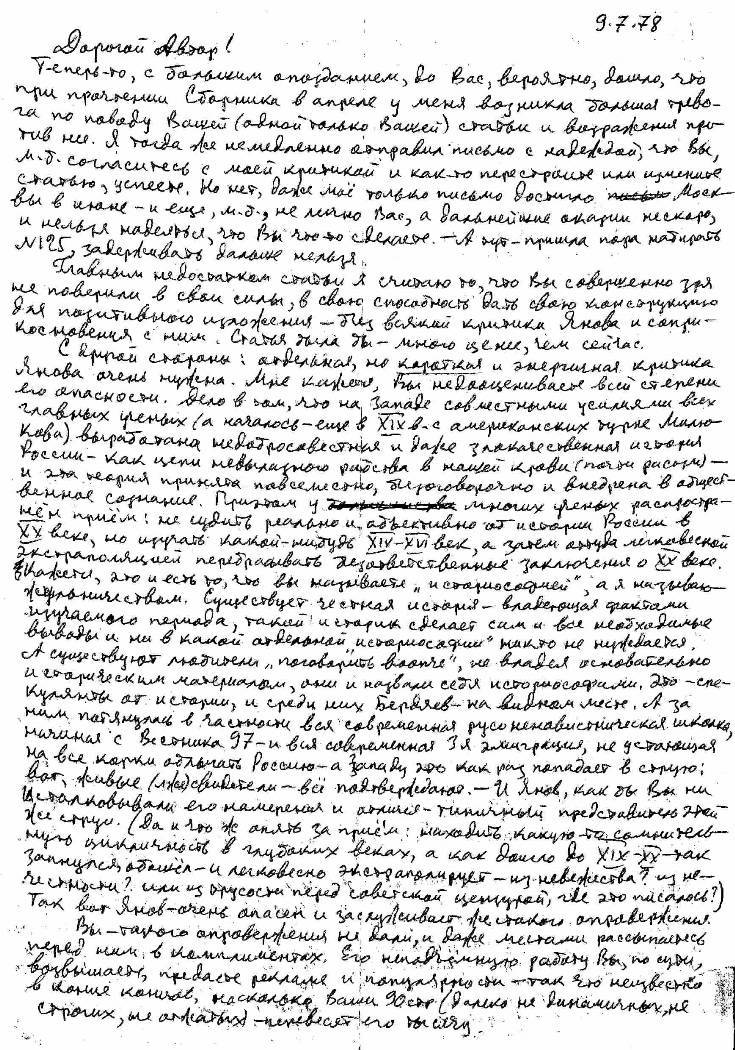 9.7.78
Дорогой Автор!
Теперь-то, с большим опозданием, до Вас, вероятно, дошло, что
при прочтении Сборника в апреле у меня возникла большая трево-
га по поводу Вашей (одной только Вашей) статьи и возражения про-
тив нее. Я тогда же немедленно отправил письмо с надеждой, что Вы,
м.б. согласитесь с моей критикой и как-то перестроите или измените
статью, успеете. Но нет, даже моё только письмо достигло Моск-
вы в июне – и еще, м.б., не лично Вас, а дальнейшие оказии нескоро,
и нельзя надеяться, что Вы что-то сделаете. – А тут – пришла пора набирать
№125, задерживать дальше нельзя.
Главным недостатком статьи я считаю то, что Вы совершенно зря
не поверили в свои силы, в свою способность дать свою конструкцию
для позитивного изложения – без всякой критики Янова и сопри-
косновения с ним. Статья была бы – много ценнее, чем сейчас.
С другой стороны: отдельная, но короткая и энергичная критика
Янова очень нужна. Мне кажется, Вы недооцениваете всей степени
его опасности. Дело в том, что на Западе совместными усилиями всех
главных ученых (а началось – еще в XIX в. – с американских турне Милю-
кова) выработана недобросовестная и даже злокачественная история
России – как цепи невылазного рабства в нашей крови (почти расизм) –
и эта теория принята повсеместно, безоговорочно и внедрена в общест-
венное сознание. При этом у многих ученых распростра-
нён приём: не судить реально и объективно от истории России в
XX веке, но изучать какой-нибудь XIV–XVI век, а затем оттуда легковесной
экстраполяцией перебрасывать безответственные заключения о XX веке.
Кажется, это и есть то, что вы называете „историософией", а я называю
жульничеством. Существует честная история – владеющая фактами
изучаемого периода, такой историк сделает сам и все необходимые
выводы и ни в какой отдельной „историософии" никто не нуждается.
А существуют любители „поговорить вообче", не владея основательно
историческим материалом, они и назвали себя историософами. Это – спе-
кулянты от истории, и среди них Бердяев – на видном месте. А за
ним потянулась в частности вся современная русоненавистническая школка,
начиная с Вестника 97 – и вся современная 3я эмиграция, не устающая
на все корки облыгать Россию – а Западу это как раз попадает в струю:
вот, живые (лже)свидетели – всё подтверждают. – И Янов, как бы Вы ни
истолковывали его намерения и отличия – типичный представитель этой
же струи. (Да и что ж опять за приём: находить какую-то сомнитель-
ную цикличность в глубоких веках, а как дошло до XIX–XX – так
запнулся, обошёл – и легковесно экстраполирует – из невежества? из не-
честности? или из трусости перед советской цензурой, где это писалось?)
Так вот Янов – очень опасен и заслуживает жестокого опровержения.
Вы – такого опровержения не дали, и даже местами рассыпаетесь
перед ним в комплиментах. Его неподъёмную работу Вы, по сути,
возвышаете, предаёте рекламе и популярности – так что неизвестно
в конце концов, насколько Ваши 90 стр (далеко не динамичных, не
строгих, не отжатых) – перевесят его тысячу.